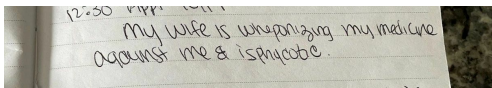 12:30
my wife is wheponizing my medicine
against me & isphycotic.